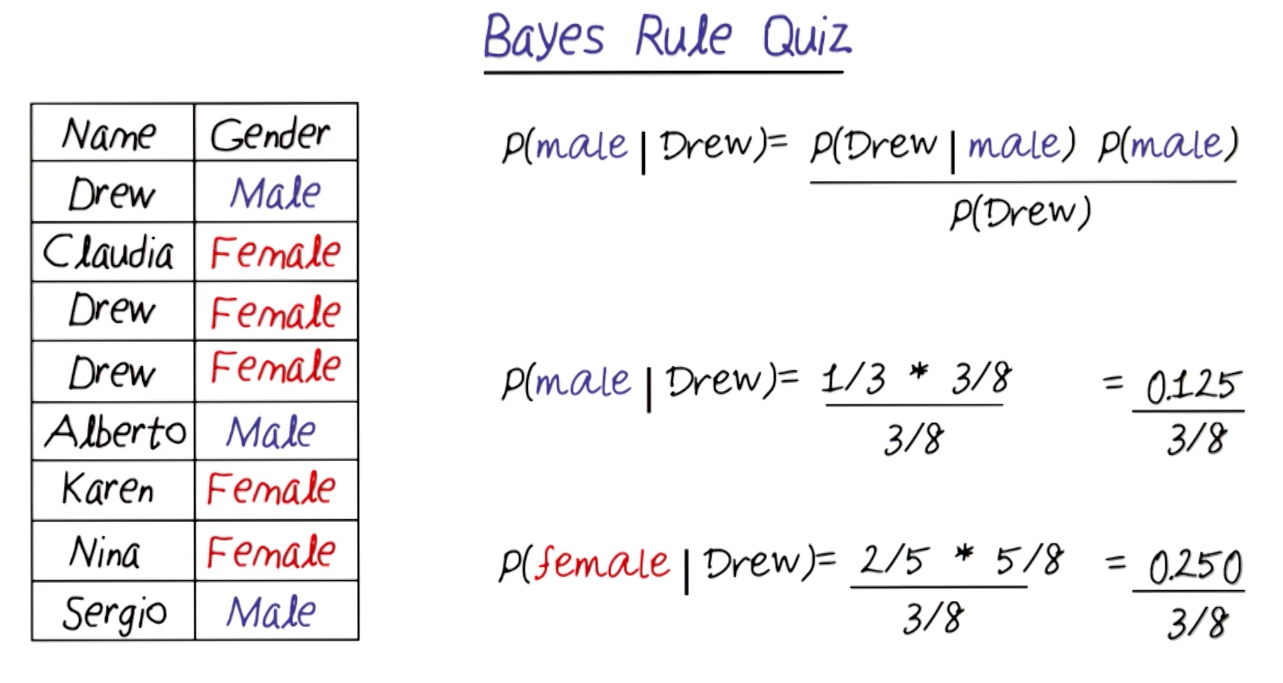 Bayes Rule Quiz
Name Gender
Drew Male
Claudia Female
Drew Female
Drew Female
Alberto Male
Karen Female
Nina Female
Sergio Male
P(male | Drew)= P(Drew | male) P(male)
P(Drew)
P(male | Drew)= 1/3 * 3/8 = 0.125
3/8 3/8
P(female | Drew)= 2/5 * 5/8 = 0.250
3/8 3/8